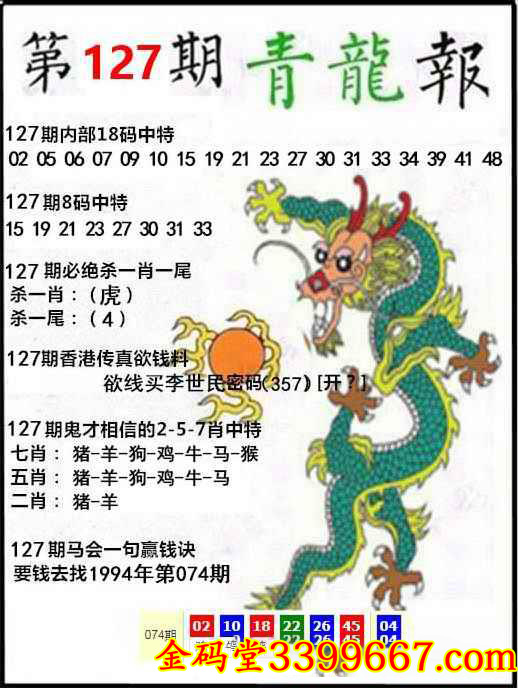 第127期青龍報
127期内部18码中特
02 05 06 07 09 10 15 19 21 23 27 30 31 33 34 39 41 48
127期8码中特
15 19 21 23 27 30 31 33
127期必绝杀一肖一尾
杀一肖：(虎)
杀一尾：(4)
127期香港传真欲钱料
欲线买李世民密码(357)[开?]
127期鬼才相信的2-5-7肖中特
七肖：猪-羊-狗-鸡-牛-马-猴
五肖：猪-羊-狗-鸡-牛-马
二肖：猪-羊
127期马会一句赢钱诀
要钱去找1994年第074期
074期 02 10 18 22 26 45 04
金码堂3399667.com